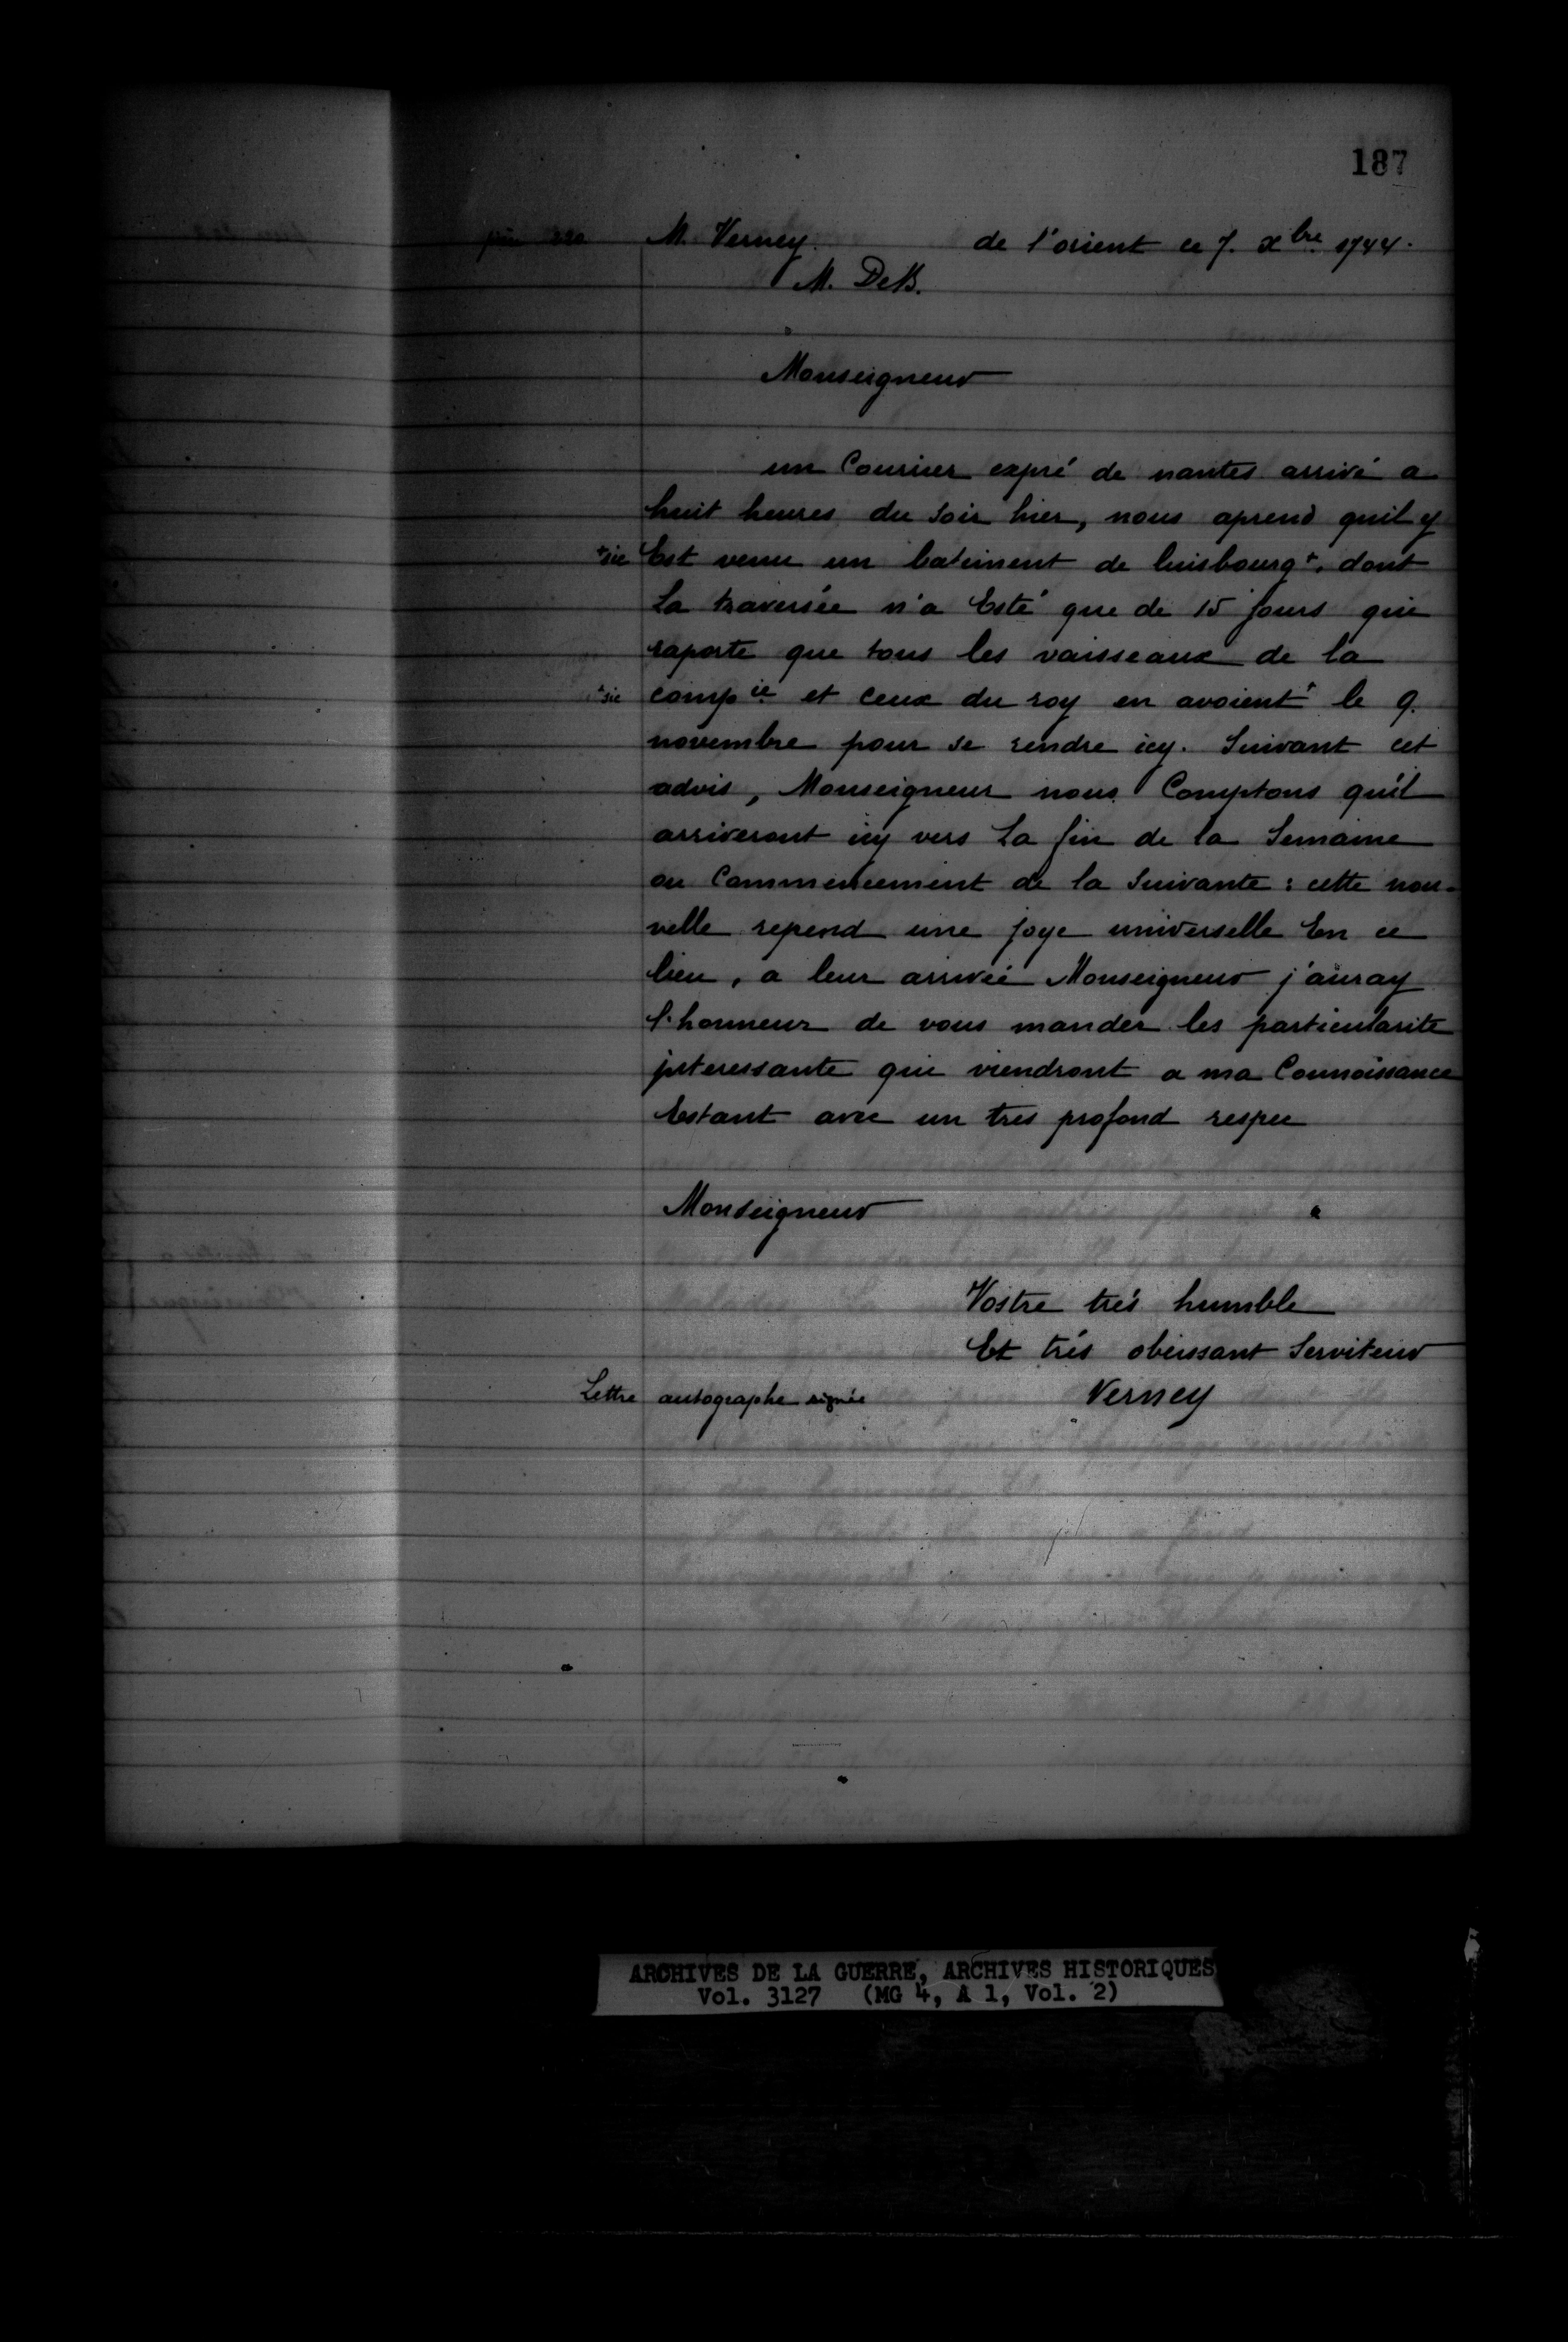 187
M. Verney. de l'orient ce 7. xbre 1744.
M. DeB.
Monseigneur
un Courier expré de nantes arrivé a
huit heures du Soir hier, nous aprend quil y
+sic Est venu un batiment de luisbourg+. dont
La traversée n'a Esté que de 15 jours qui
raporte que tous les vaisseaux de la
+sic compie et ceux du roy en avoient+ le 9.
novembre pour se rendre icy. Suivant cet
advis, Monseigneur nous Comptons quil
arriveront icy vers La fin de la Semaine
ou Commencement de la Suivante : cette nou-
velle repend une joye universelle En ce
lieu, a leur arrivée Monseigneur j'auray
l'honneur de vous mander les particularite
jnteressante qui viendront a ma Connoissance
Estant avec un tres profond respec
Monseigneur
Vostre trés humble
Et trés obeissant Serviteur
Lettre autographe signée Verney
ARCHIVES DE LA GUERRE, ARCHIVES HISTORIQUES
Vol. 3127 (MG 4, A 1, Vol. 2)